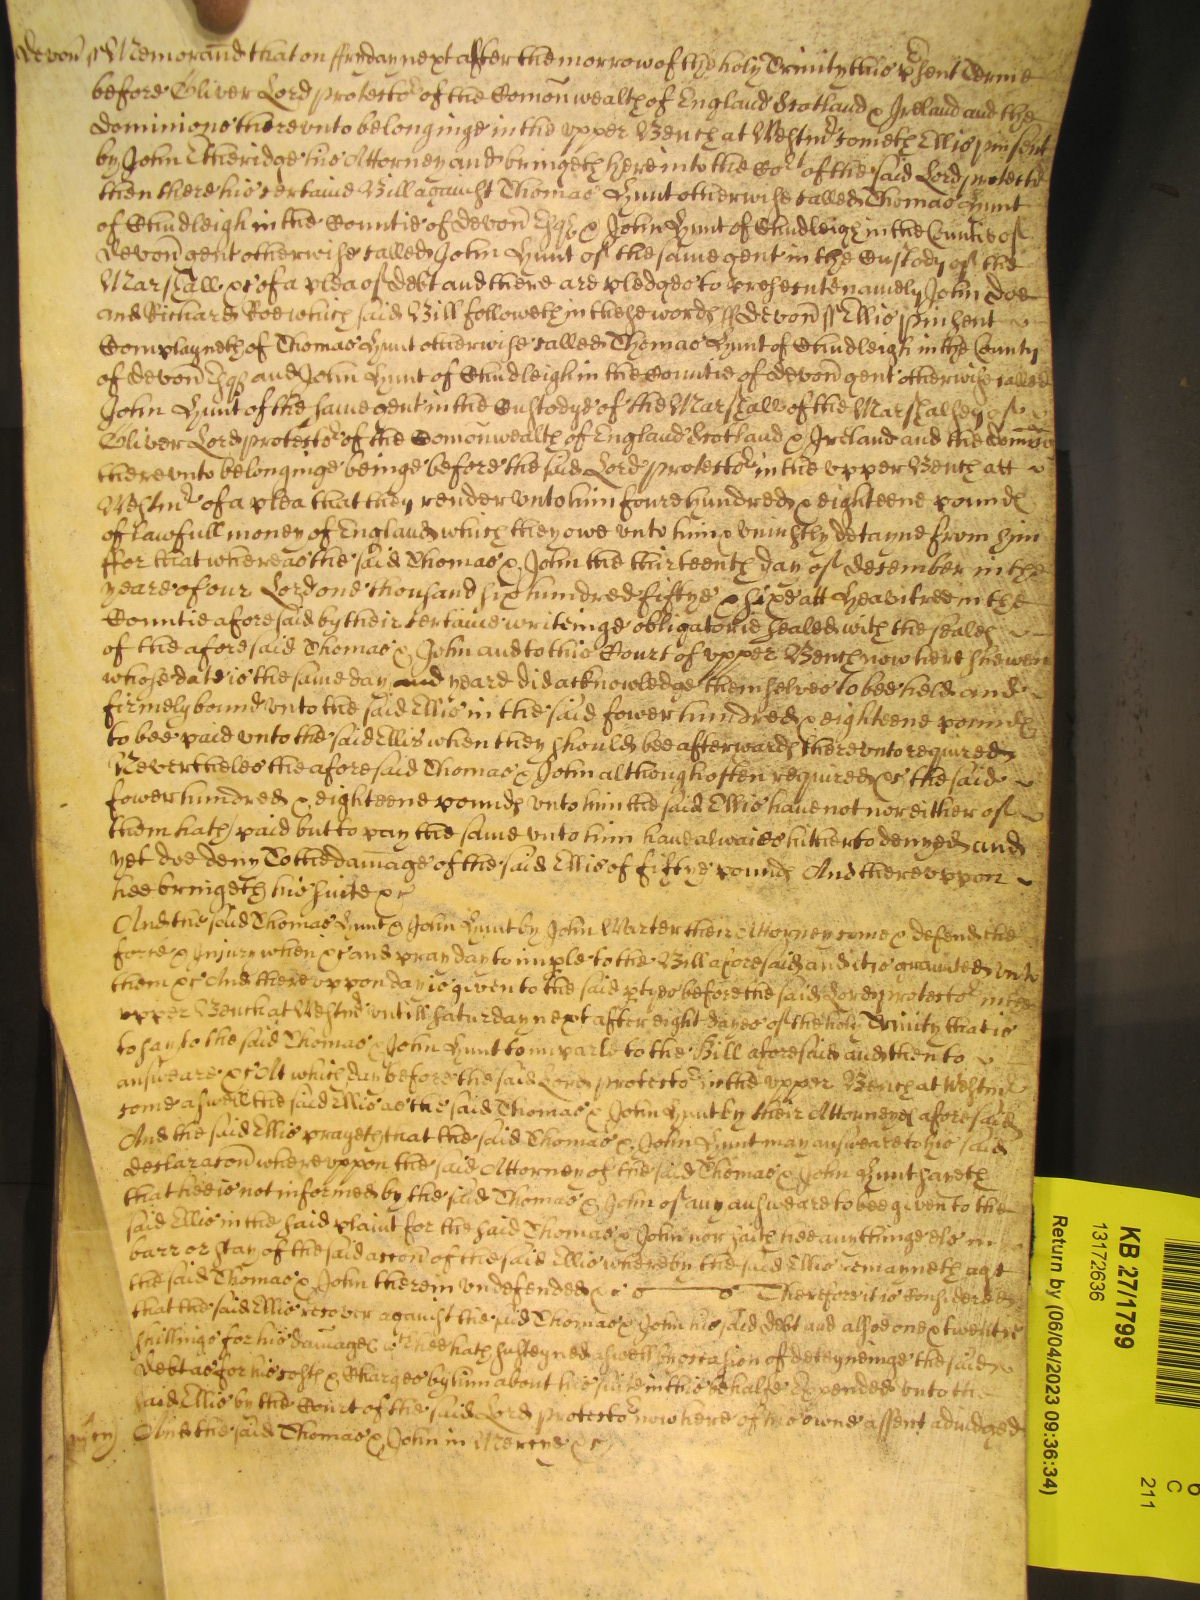 Devon ss Memorand that on ffryday next after the morrow of the holy Trinity this psent Terme
before Oliver Lord protector of the Comonwealth of England Scotland & Ireland and the
dominions thereunto belonginge in the upper Bench at Westmr cometh Ellis pinsent
by John Etheridge his Attorney and bringeth here into the Cort of the said Lord protector
then there his certaine Bill against Thomas Hunt otherwise called Thomas Hunt
of Chudleigh in the Countie of devon Esqr & John Hunt of Chudleigh in the Countie of
devon gent otherwise called John Hunt of the same gent in the Custody of the
Marshall &c of a plea of debt and there are pledges to prosecute namely John Doe
and Richard Roe which said Bill followeth in these words ss devon ss Ellis pinsent
Complayneth of Thomas Hunt otherwise called Thomas Hunt of Chudleigh in the County
of devon Esqr and John Hunt of Chudleigh in the Countie of devon gent otherwise called
John Hunt of the same gent in the Custodye of the Marshall of the Marshalsey of
Oliver Lord protector of the Comonwealth of England Scotland & Ireland and the
thereunto belonginge beinge before the said Lord protector in the upper Bench att
Westmr of a plea that they render unto him foure hundred & eighteene pounds
of lawfull money of England which they owe unto him & uniustly detayne from him
ffor that whereas the said Thomas & John the thirteenth day of december in the
yeare of our Lord one thousand six hundred fiftye & sixe att Heavitree in the
Countie aforesaid by their certaine writeinge obligatorie sealed with the seales
of the aforesaid Thomas & John and to this Court of upper Bench now here shewen
whose date is the same day and yeare did acknowledge themselves to bee held and
firmely bound unto the said Ellis in the said fower hundred & eighteene pounds
to bee paid unto the said Ellis when they should bee afterwards thereunto required
Neverthelesse the aforesaid Thomas & John although often required &c the said
fower hundred & eighteene pounds unto him the said Ellis have not nor either of
them hath paid but to pay the same unto him have alwaies hitherto denyed and
yet doe deny To the damage of the said Ellis of fiftye pounds And thereuppon
hee bringeth his suite &c
And the said Thomas Hunt & John Hunt by John Warter their Attorney come & defend the
force & Injury when &c and pray day to imple to the Bill aforesaid and it is graunted unto
them &c And thereuppon day is given to the said ptyes before the said Lord protector in the
upper Bench at Westmr untill Saturday next after eight dayes of the holy Trinity that is
to say to the said Thomas & John Hunt to imparle to the Bill aforesaid and then to
answeare &c At which day before the said Lord protector in the upper Bench at Westmr
come aswell the said Ellis as the said Thomas & John Hunt by their Attorneyes aforesaid
And the said Ellis prayeth that the said Thomas & John Hunt may answeare to his said
declaracon whereuppon the said Attorney of the said Thomas & John Hunt sayeth
that hee is not informed by the said Thomas & John of any answeare to bee given to the
said Ellis in the said plaint for the said Thomas & John nor saith hee any thinge els in
barr or stay of the said accon of the said Ellis whereby the said Ellis remayneth agt
the said Thomas & John therein undefended &c Therefore it is Considered
that the said Ellis recover against the said Thomas & John his said debt and alsoe one & twentie
shillings for his damages wch hee hath susteyned aswell by occasion of deteyneinge the said
debt as for his costs & Charges by him about his suite in this behalfe Expended unto the
said Ellis by the Court of the said Lord protector now here of his owne assent adiudged
And the said Thomas & John in Mercye &c
KB 27/1799
13172636
Return by (06/04/2023 09:36:34)
C
211